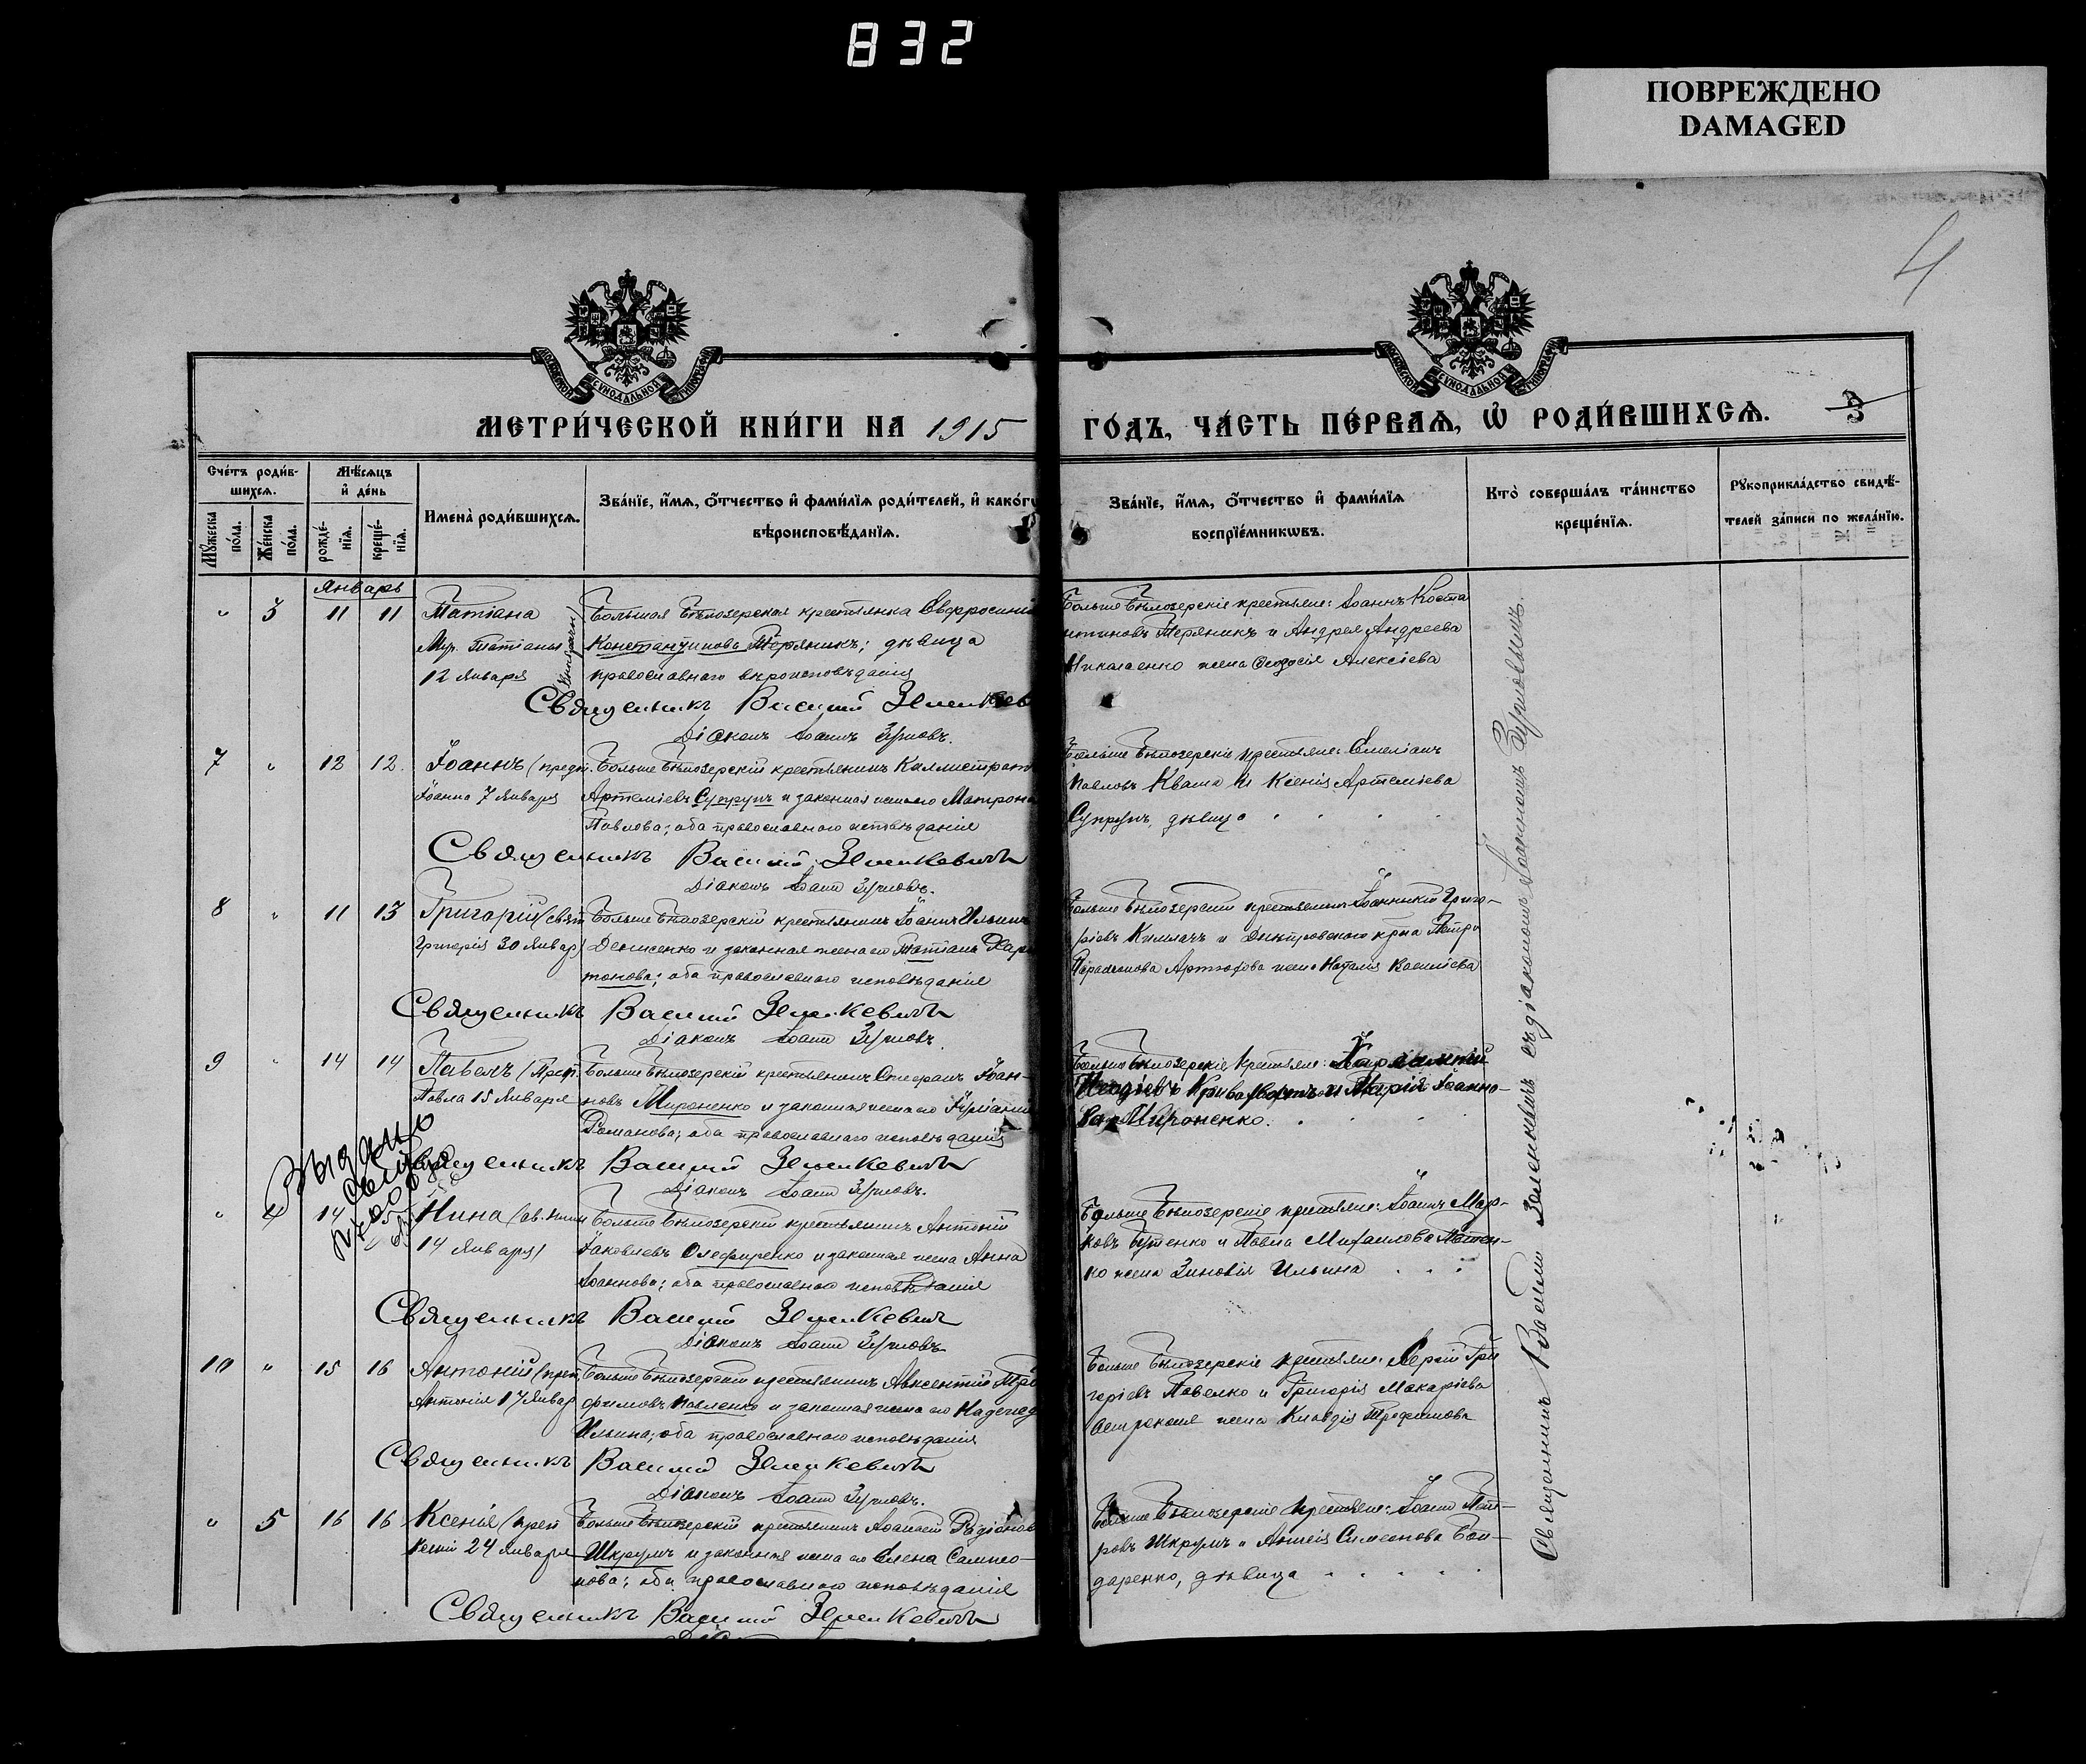 832
ПОВРЕЖДЕНО
DAMAGED
4
МЕТРИ́ЧЕСКОЙ КНИ́ГИ НА 1915
ГО́ДЪ, ЧА́СТЬ ПЕ́РВАѦ, Ѡ҆ РОДИ́ВШИХСѦ.
3
Сче́тъ роди́в-
шихсѧ.
Мꙋ́жеска по́ла.
Же́нска по́ла.
Мѣ́сѧцъ
и҆ де́нь
рожде́-
нїѧ.
креще́-
нїѧ.
И҆мена̀ роди́вшихсѧ.
Зва́нїе, и҆́мѧ, ѻ҆́тчество и҆ фами́лїѧ роди́телей, и҆ како́гѡ
вѣроисповѣ́данїѧ.
Зва́нїе, и҆́мѧ, ѻ҆́тчество и҆ фами́лїѧ
воспрїе́мникѡвъ.
Кто̀ соверша́лъ та́инство
креще́нїѧ.
Рꙋкоприкла́дство свидѣ́-
телей за́писи по жела́нїю.
Январь
" 3 11 11 Татіана
Мұч. Татіаны
12 Января
Большая Бѣлозерская крестьянка Евфросинія
Константинова Теряникъ; дѣвица
православнаго вѣроисповѣданія
Священникъ Василій
Діаконъ Іоаннъ
Больше Бѣлозерскіе крестьяне: Іоаннъ Конста
нтиновъ Теряникъ и Андрея Андреева
Николаенко жена Ѳеодосія Алексіева
7 " 12 12 Іоаннъ (предт.
Іоанна 7 Января
Больше Бѣлозерскій крестьянинъ Каллистратъ
Артеміевъ Супрунъ и законная жена его Матрона
Павлова; оба православнаго исповѣданія
Священникъ Василій Зеленкевичъ
Діаконъ Іоаннъ
Больше Бѣлозерскіе крестьяне: Емеліанъ
Павловъ Кваша и Ксенія Артеміева
Супрунъ, дѣвица
8 " 11 13 Григорій (свят.
Григорія 30 Январ)
Больше Бѣлозерскій крестьянинъ Іоаннъ Ильинъ
Денисенко и законная жена его Татіана Хари
тонова; оба православнаго исповѣданія
Священникъ Василій Зеленкевичъ
Діаконъ Іоаннъ
Больше Бѣлозерскій крестьянинъ Іоанникій Григо-
ріевъ и Днѣпровскаго Петра
жена Наталія Васильева
9 " 14 14 Павелъ (Преп.
Павла 15 Января
Больше Бѣлозерскій крестьянинъ Стефанъ Іоан-
новъ Мироненко и законная жена его Іуліанія
Романова; оба православнаго исповѣданія
Священникъ Василій Зеленкевичъ
Діаконъ Іоаннъ
Больше Бѣлозерскіе крестьяне: Харлампій
и Марія Іоанно-
ва Мироненко.
Выдано
" 4 14 15 Нина (св. Нины
14 Января)
Больше Бѣлозерскій крестьянинъ Антоній
Іаковлевъ Олефиренко и законная жена Анна
Іоаннова; оба православнаго исповѣданія
Священникъ Василій Зеленкевичъ
Діаконъ Іоаннъ
Больше Бѣлозерскіе крестьяне: Іоаннъ Мар-
ковъ Бутенко и Павла Михаилова
жена Зиновія Ильина
10 " 15 16 Антоній (преп.
Антонія 17 Январ
Больше Бѣлозерскій крестьянинъ Авксентій Тро
фимовъ Павленко и законная жена его Надежда
Ильина; оба православнаго исповѣданія
Священникъ Василій Зеленкевичъ
Діаконъ Іоаннъ
Больше Бѣлозерскіе крестьяне: Сергій Гри
горіевъ Павелко и Григорія Макаріева
жена Клавдія Трофимова
" 5 16 16 Ксенія (преп
Ксеніи 24 Января
Больше Бѣлозерскій крестьянинъ Родіоновъ
Шкрумъ и законная жена его Елена Сампсо-
нова; оба православнаго исповѣданія
Священникъ Василій Зеленкевичъ
Больше Бѣлозерскіе крестьяне: Іоаннъ Пет-
ровъ Шкрумъ и Симеонова Бон-
даренко, дѣвица
Священникъ Василій Зеленкевичъ съ діакономъ Іоанномъ